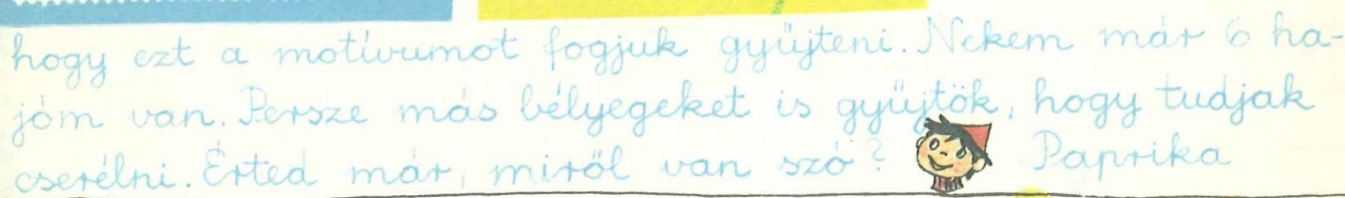 hogy ezt a motívumot fogjuk gyűjteni. Nekem már 6 ha-
jóm van. Persze más bélyegeket is gyűjtök, hogy tudjak
cserélni. Érted már, miről van szó? Paprika